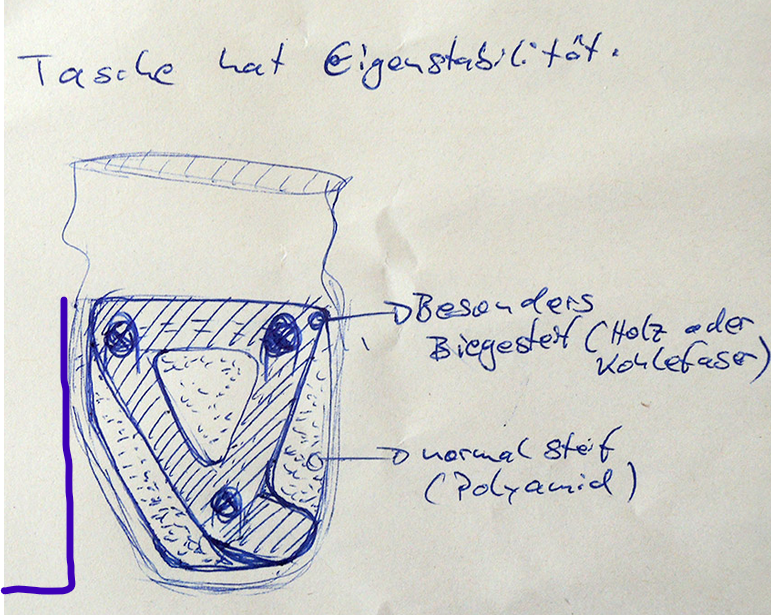 Tasche hat Eigenstabilität.
Besonders
Biegesteif (Holz oder
Kohlefaser)
normal steif
(Polyamid)